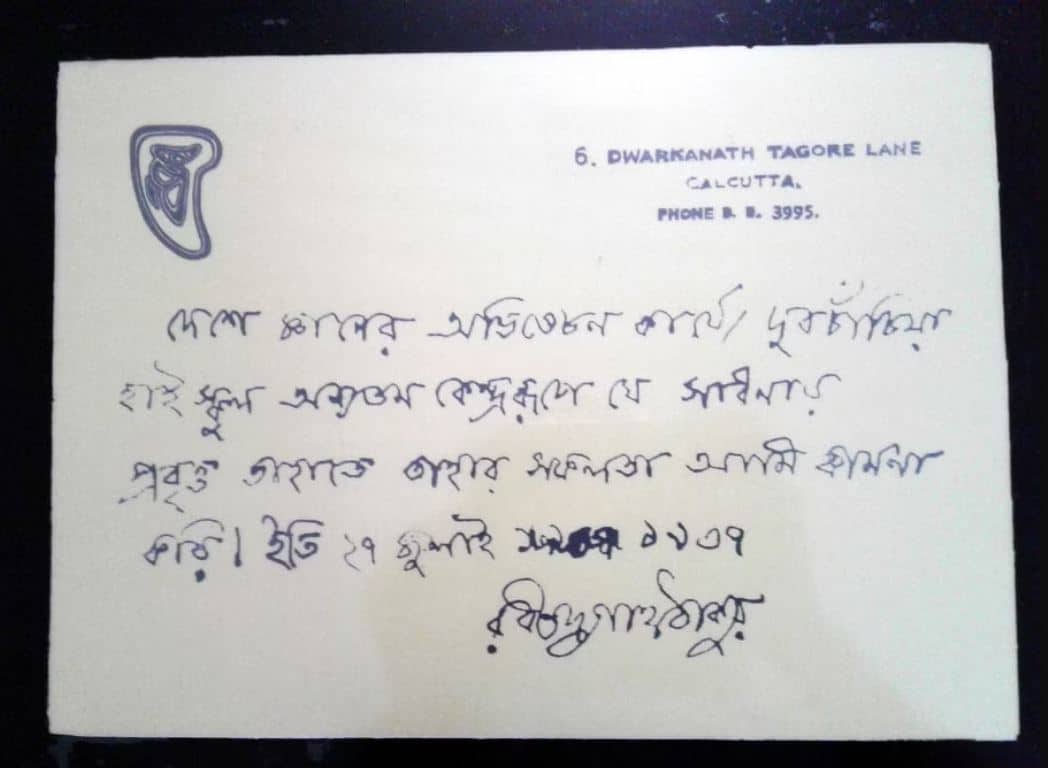 6. DWARKANATH TAGORE LANE
CALCUTTA.
PHONE B. B. 3995.
দেশে জ্ঞানের অভিষেচন কার্য্যে দুবচাঁচিয়া
হাই স্কুল অন্যতম কেন্দ্ররূপে যে সাধনায়
প্রবৃত্ত তাহাতে তাহার সফলতা আমি কামনা
করি। ইতি ২৭ জুলাই ১৯৩৭
রবীন্দ্রনাথ ঠাকুর